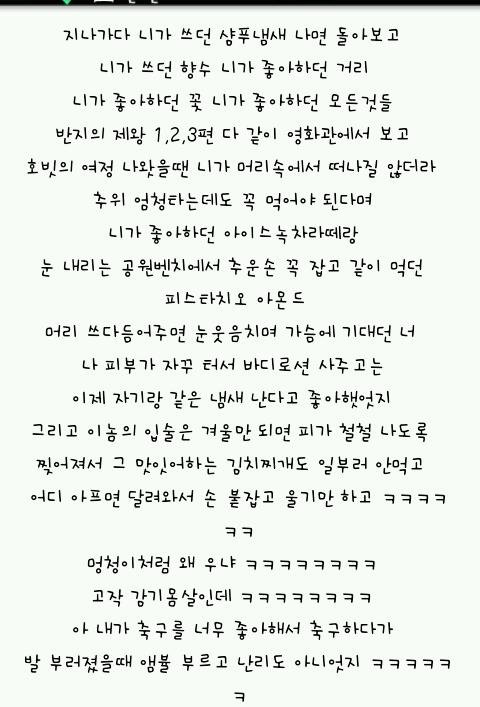 지나가다 니가 쓰던 샴푸냄새 나면 돌아보고
니가 쓰던 향수 니가 좋아하던 거리
니가 좋아하던 꽃 니가 좋아하던 모든것들
반지의 제왕 1,2,3편 다 같이 영화관에서 보고
호빗의 여정 나왓을땐 니가 머리속에서 떠나질 않더라
추위 엄청타는데도 꼭 먹어야 된다며
니가 좋아하던 아이스녹차라떼랑
눈 내리는 공원벤치에서 추운손 꼭 잡고 같이 먹던
피스타치오 아몬드
머리 쓰다듬어주면 눈웃음치며 가슴에 기대던 너
나 피부가 자꾸 터서 바디로션 사주고는
이제 자기랑 같은 냄새 난다고 좋아했엇지
그리고 이놈의 입술은 겨울만 되면 피가 철철 나도록
찢어져서 그 맛잇어하는 김치찌개도 일부러 안먹고
어디 아프면 달려와서 손 붙잡고 울기만 하고 ㅋㅋㅋㅋ
ㅋㅋ
멍청이처럼 왜 우냐 ㅋㅋㅋㅋㅋㅋㅋㅋ
고작 감기몸살인데 ㅋㅋㅋㅋㅋㅋㅋㅋ
아 내가 축구를 너무 좋아해서 축구하다가
발 부러졌을때 앰뷸 부르고 난리도 아니엇지 ㅋㅋㅋㅋㅋ
ㅋ